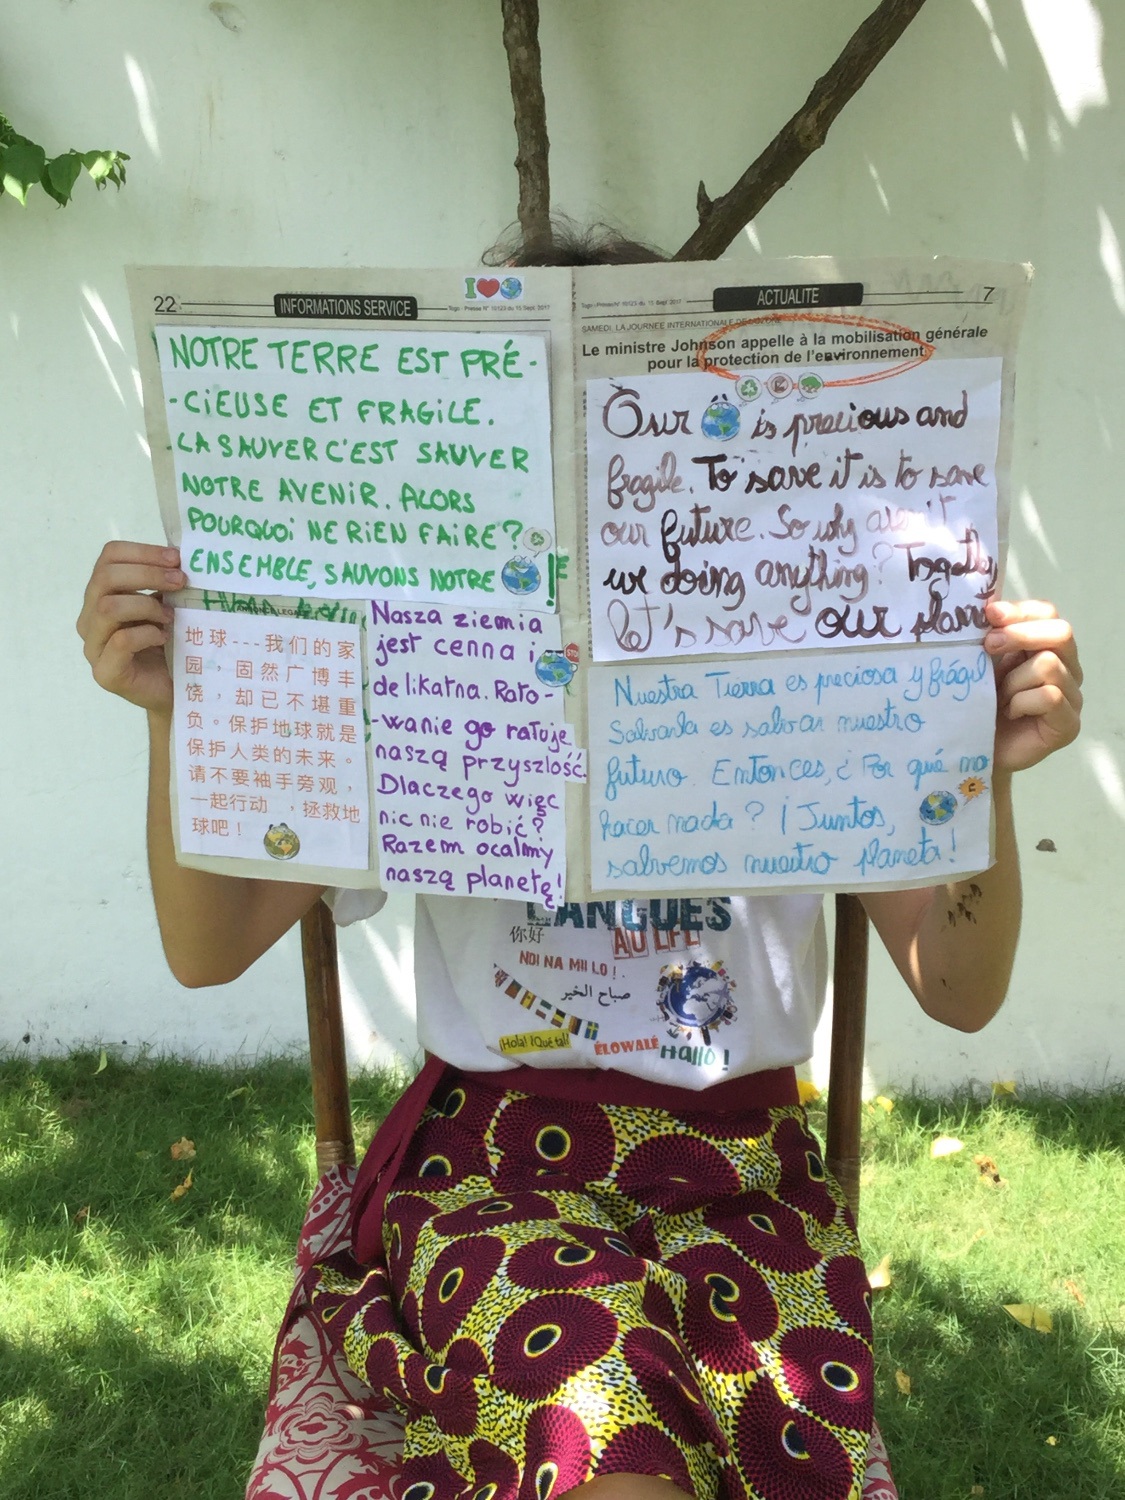 22
INFORMATIONS SERVICE
Togo - Presse N° 10123 du 15 Sept. 2017
I
NOTRE TERRE EST PRÉ-
-CIEUSE ET FRAGILE.
LA SAUVER C'EST SAUVER
NOTRE AVENIR. ALORS
POURQUOI NE RIEN FAIRE?
ENSEMBLE, SAUVONS NOTRE !
地球---我们的家
园，固然广博丰
饶，却已不堪重
负。保护地球就是
保护人类的未来。
请不要袖手旁观，
一起行动，拯救地
球吧！
Nasza ziemia
jest cenna i
delikatna. Rato-
-wanie go ratuje
naszą przyszlość.
Dlaczego więc
nic nie robić?
Razem ocalmy
naszą planetę!
STOP
Togo - Presse N° 10123 du 15 Sept 2017
ACTUALITE
7
SAMEDI, LA JOURNEE INTERNATIONALE DE L'OZONE
Le ministre Johnson appelle à la mobilisation générale
pour la protection de l'environnement
Our is precious and
fragile. To save it is to save
our future. So why aren't
we doing anything? Together
let's save our planet
Nuestra Tierra es preciosa y frágil
Salvarla es salvar nuestro
futuro. Entonces, ¿ Por qué no
hacer nada? ¡ Juntos,
salvemos nuestro planeta!
LANGUES
AU LFL
你好
NOI NA MII LO !.
صباح الخير
¡Hola! ¿Qué tal?
ÉLOWALÉ
Hallo !